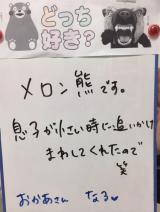 どっち
好き？
メロン熊です。
息子が小さい時に追いかけ
まわしてくれたので
笑
おかあさん なる♡